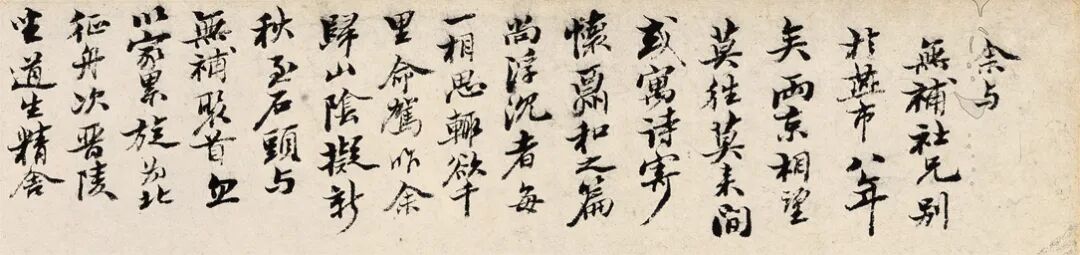 余与
無補社兄别
於燕市八年
矣兩京相望
莫往莫来間
或寓詩寄
懷和之篇
尚浮沉者每
一相思輒欲千
里命駕昨余
歸山陰擬新
秋至石頭与
無補聚首
以家累旋為北
征舟次晋陵
坐道生精舍